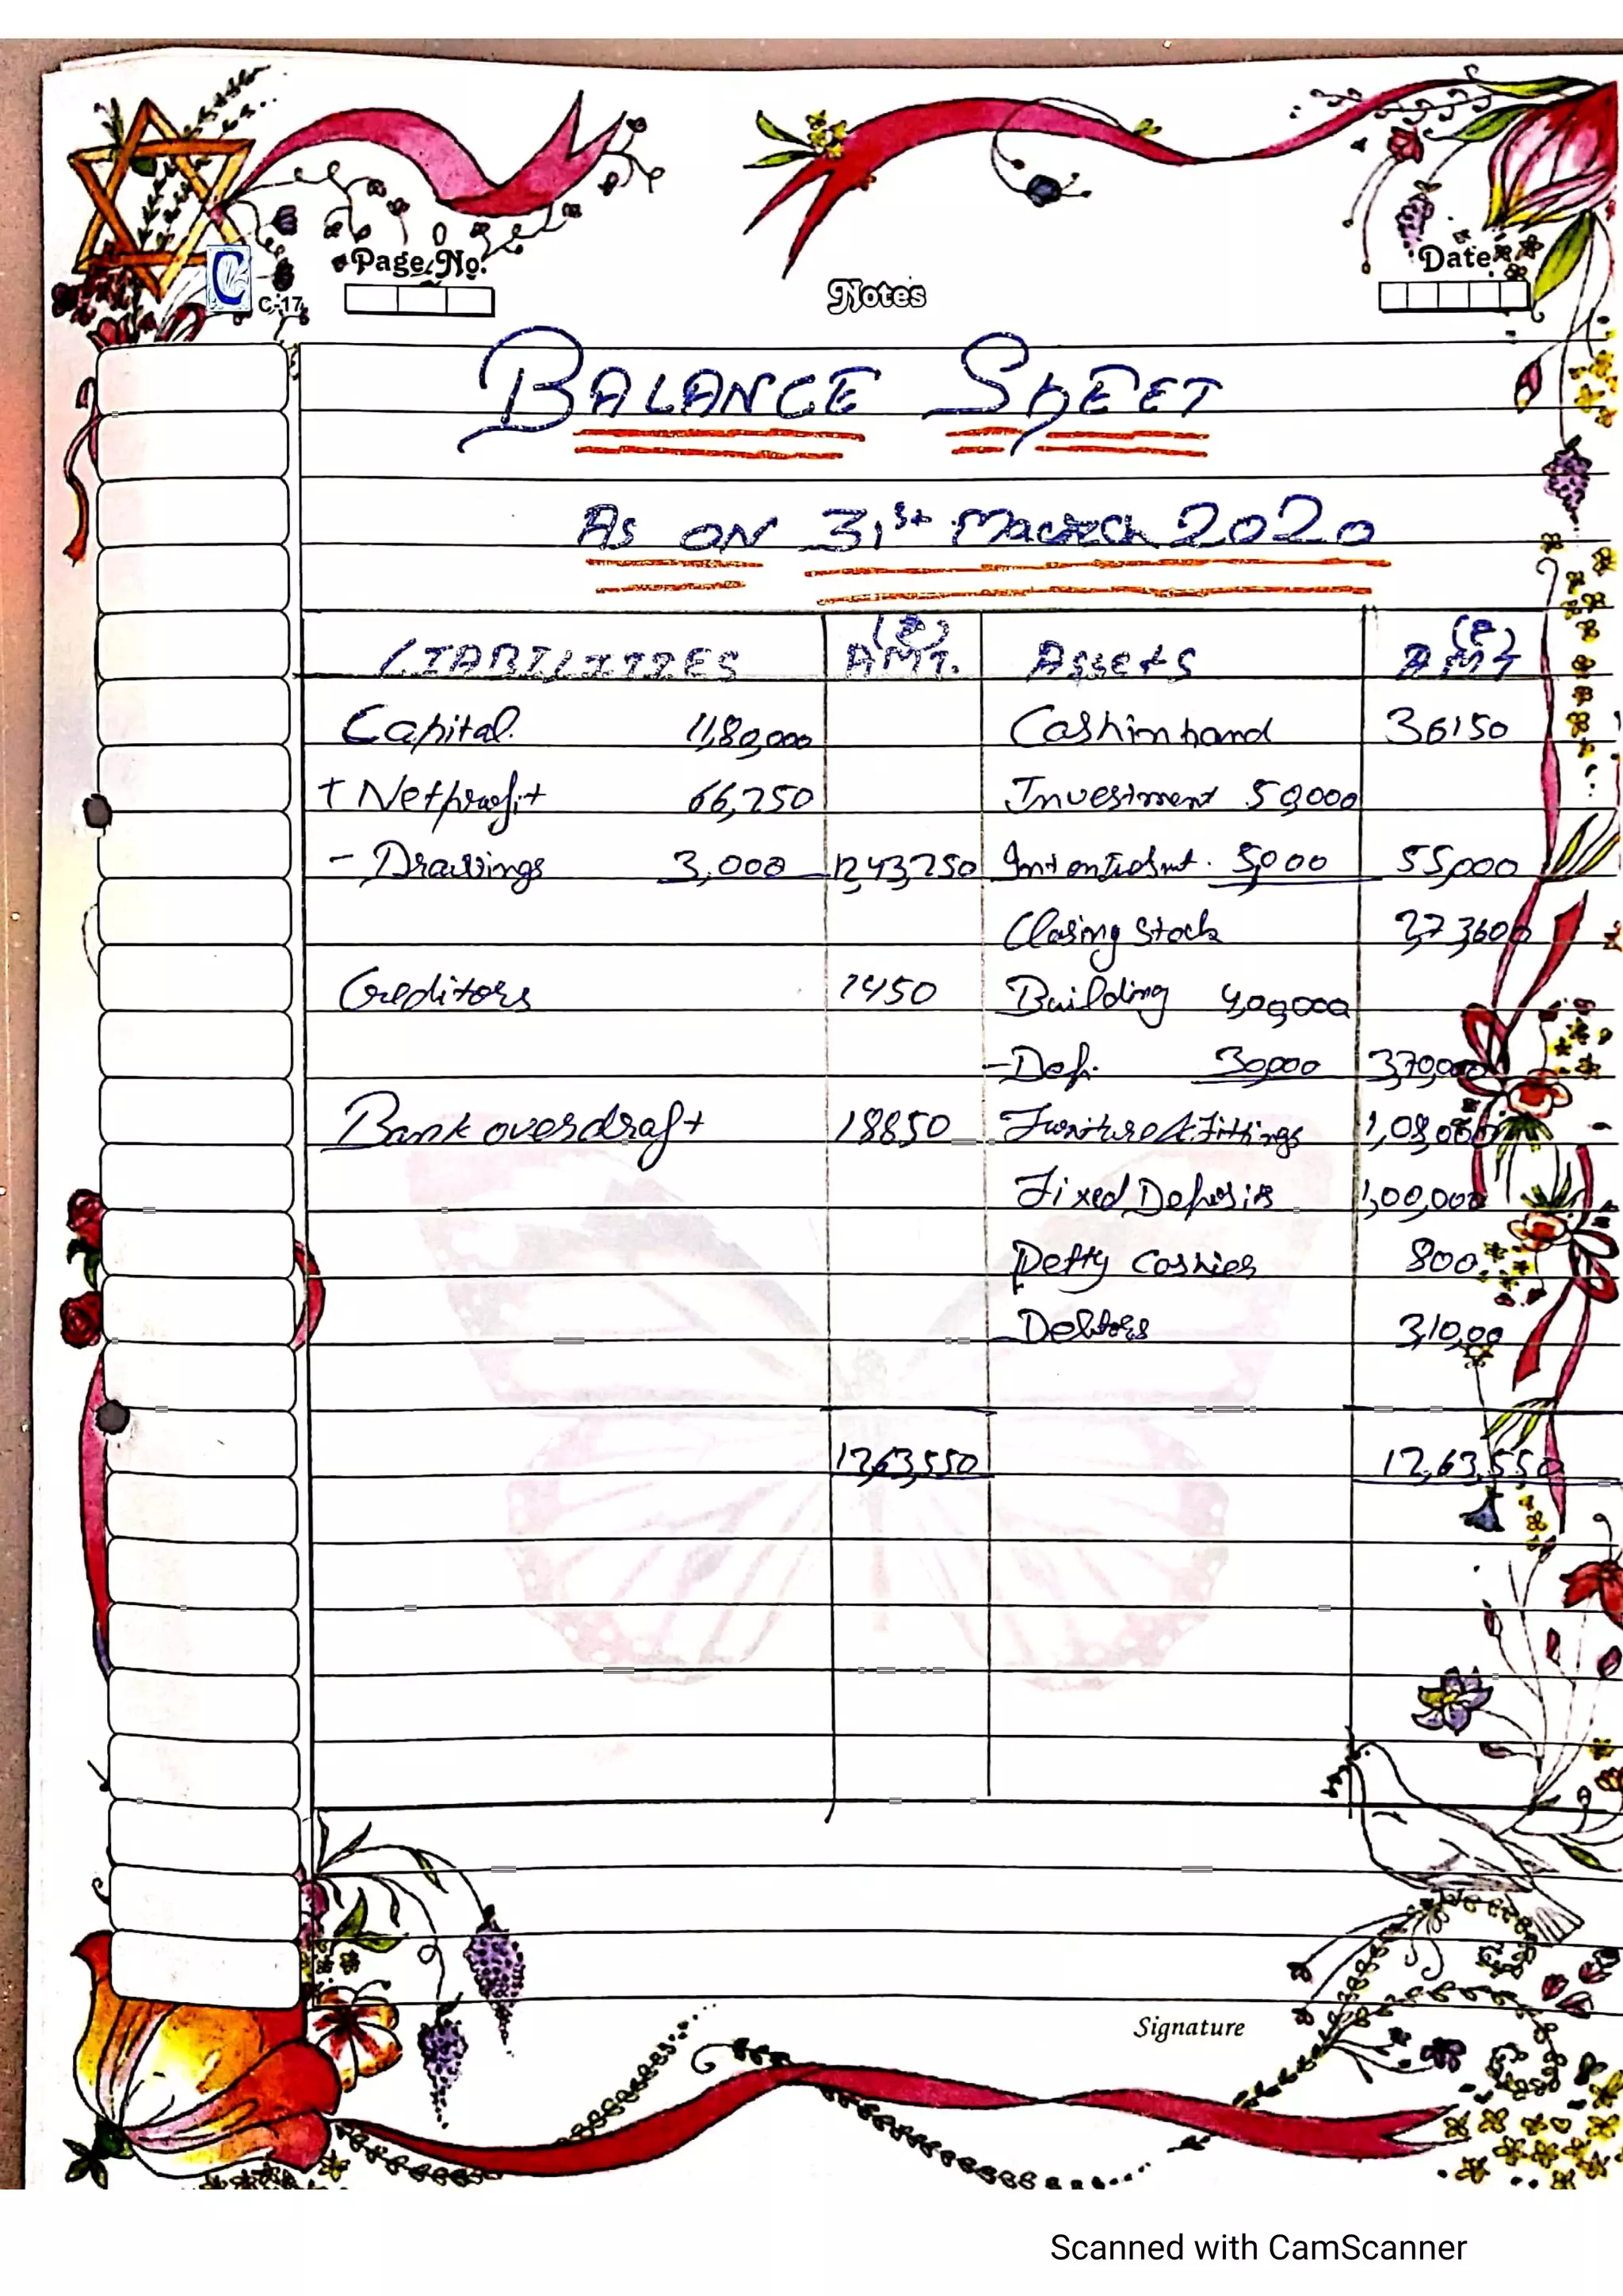 C
C-17
Page No.
Notes
Date
BALANCE SHEET
As ON 31st March 2020
LIABILITIES (₹) AMT. Assets (₹) AMT
Capital. 11,80,000 Cash in hand 36150
+ Net profit 66,250 Investment 50,000
- Drawings 3,000 12,43,250 5,000 55,000
Closing Stock 2,73600
Creditors 1450 Building 4,00,000
- Dep. 30,000 3,70,000
Bank overdraft 18850 Furniture & Fittings 1,08,000
Fixed Deposit 1,00,000
Petty Cashier 800
Debtors
12,63,550 12,63,550
Signature
Scanned with CamScanner